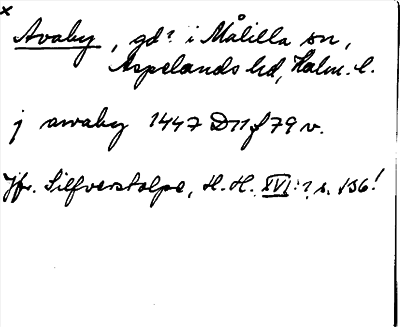 x
Avaby, gd? i Målilla sn,
Aspelands hd, Kalm. l.
j awaby 1447 D11 f 79 v.
Jfr. Silfverstolpe, H. H. XVI: ?, s. 136!